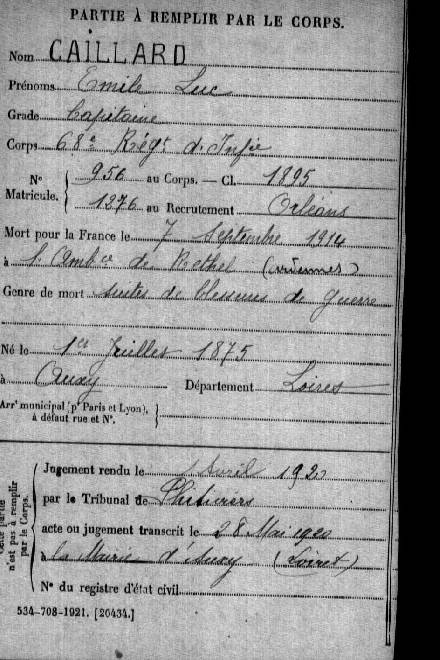 PARTIE À REMPLIR PAR LE CORPS.
Nom CAILLARD
Prénoms Emile Luc
Grade Capitaine
Corps 68e Régt d'Infie
N° Matricule. { 956 au Corps. — Cl. 1895
1276 au Recrutement Orléans
Mort pour la France le 7 Septembre 1914
à l'Ambce de Rethel (Ardennes)
Genre de mort suites de blessures de guerre
Né le 1er Juillet 1875
à Auxy Département Loiret
Arrt municipal (pr Paris et Lyon), à défaut rue et N°.
Cette partie n'est pas à remplir par le Corps.
Jugement rendu le 1 Avril 1920
par le Tribunal de Pithiviers
acte ou jugement transcrit le 28 Mai 1920
à la Mairie d'Auxy (Loiret)
N° du registre d'état civil
534-708-1921. [20434.]